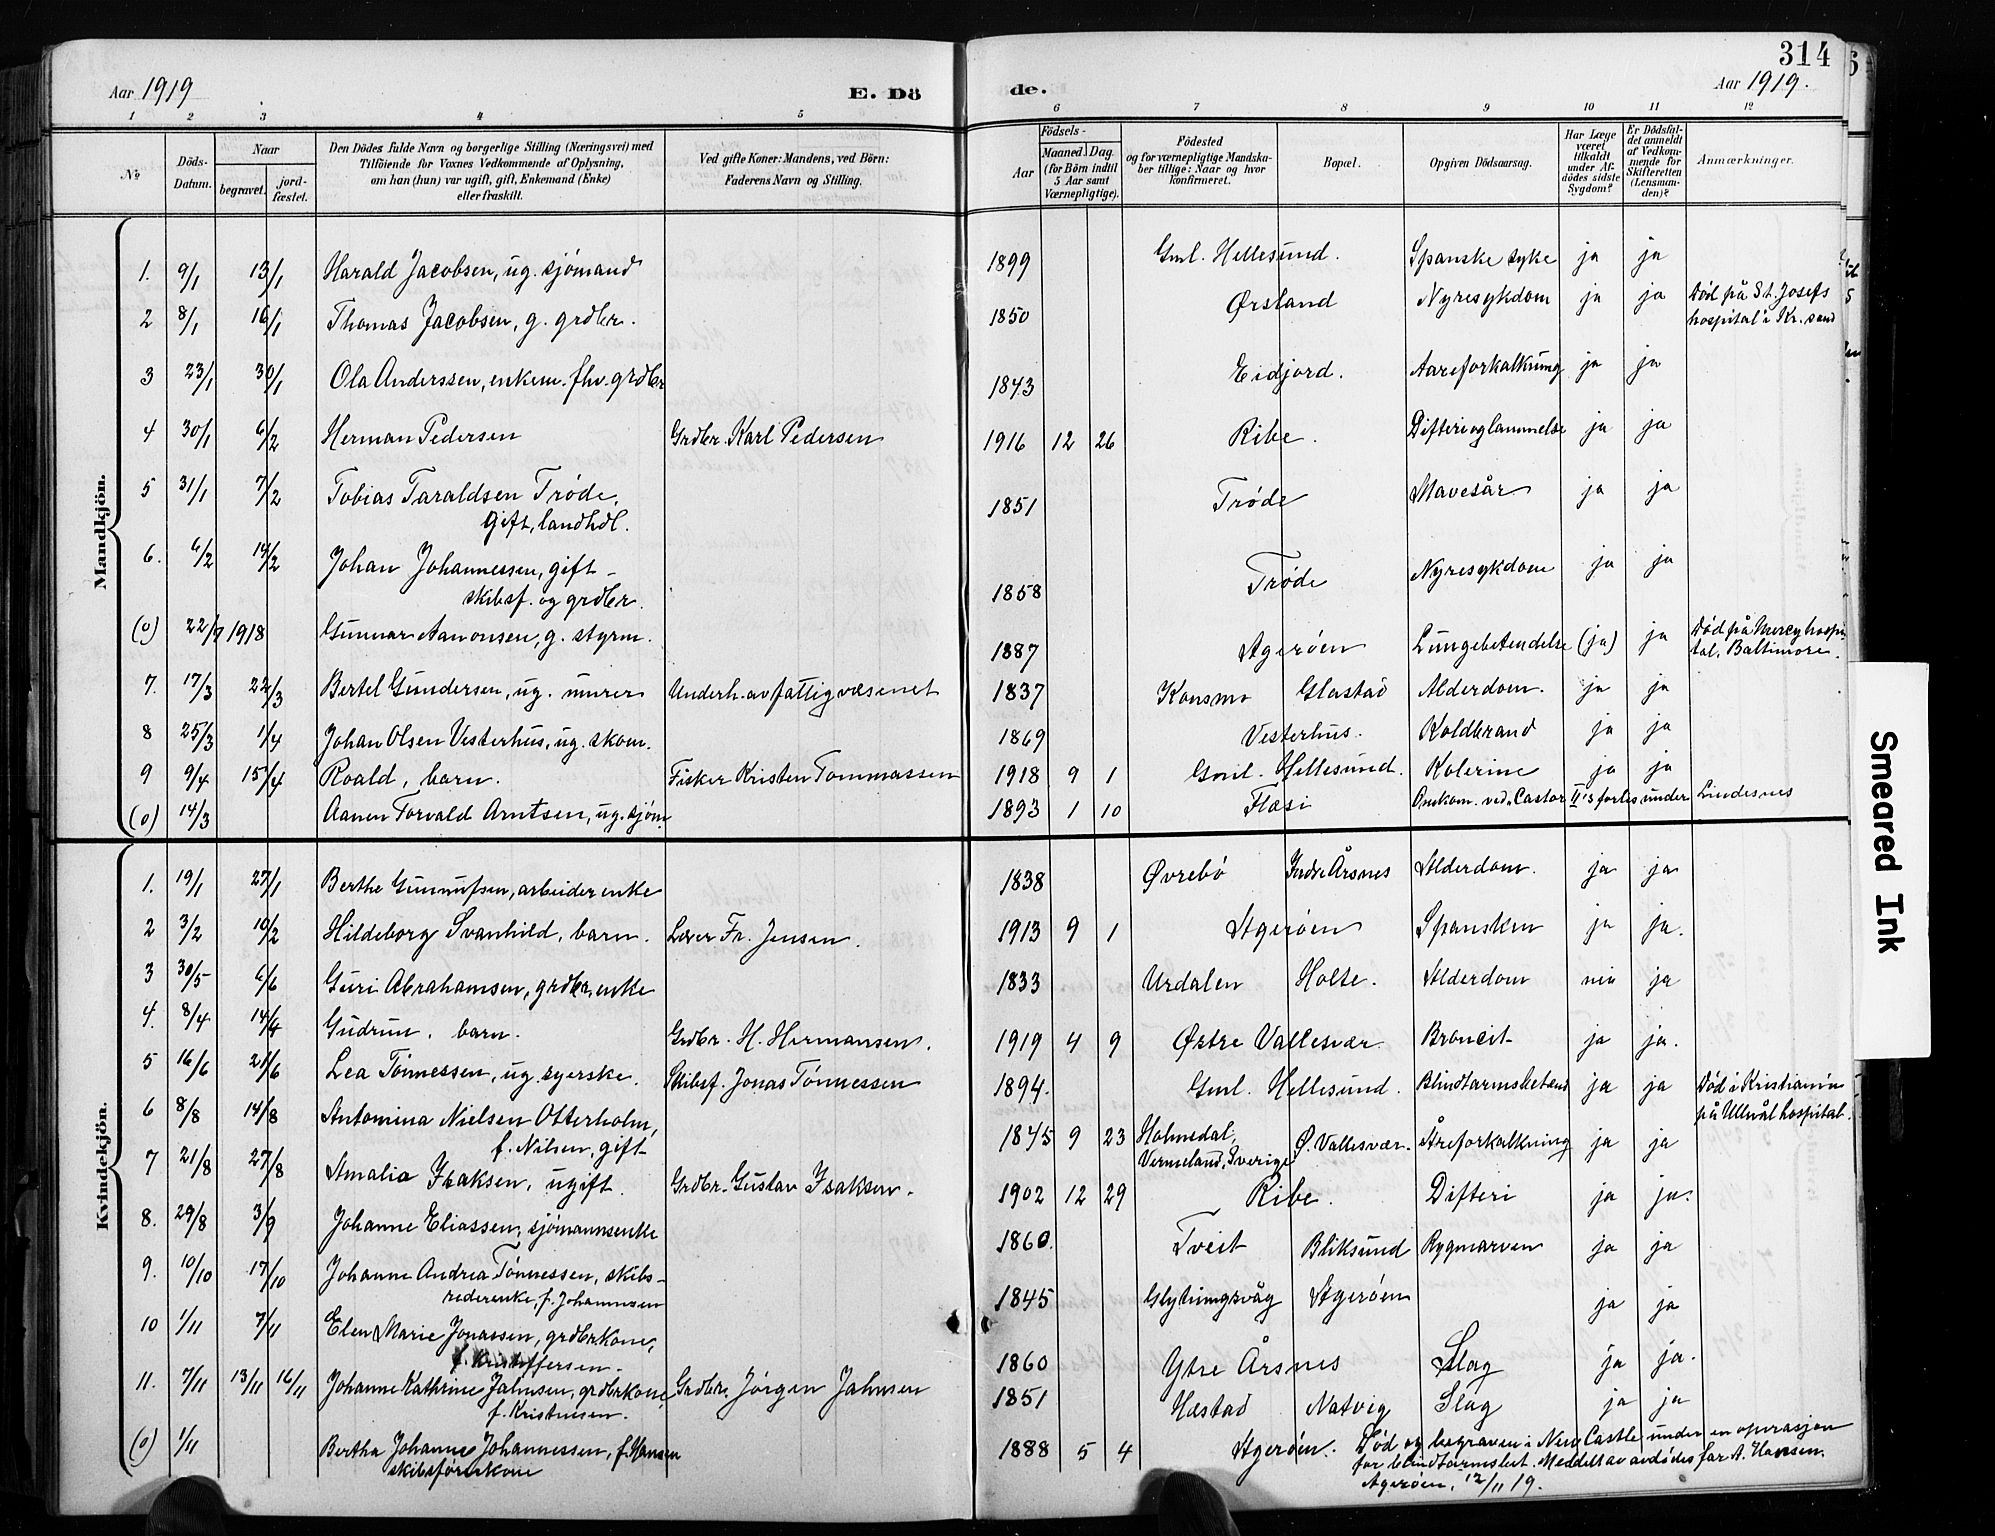 314
Aar 1919 E. Dö de. Aar 1919.
1 2 3 4 5 6 7 8 9 10 11 12
No Döds-Datum. Naar begravet. jord-fæstet. Den Dödes fulde Navn og borgerlige Stilling (Næringsvei) med Tilföiende for Voxnes Vedkommende af Oplysning, om han (hun) var ugift, gift, Enkemand (Enke) eller fraskilt. Ved gifte Koner: Mandens, ved Börn: Faderens Navn og Stilling. Födsels- Aar Maaned Dag. (for Börn indtil 5 Aar samt Værnepligtige). Födested og for værnepligtige Mandskaber tillige: Naar og hvor konfirmeret. Bopæl. Opgiven Dödsaarsag. Har Læge været tilkaldt under Afdödes sidste Sygdom? Er Dödsfaldet anmeldt af Vedkommende for Skifteretten (Lensmanden)? Anmærkninger.
Mandkjön.
1. 9/1 13/1 Harald Jacobsen, ug. sjömand 1899 Gml. Hellesund. Spanske syke ja ja
2 8/1 16/1 Thomas Jacobsen, g. grdbr. 1850 Ørsland Nyresykdom ja ja Død på St. Josefs
hospital i Kr. sand
3 23/1 30/1 Ola Anderssen, enkem. fhv. grdbr 1843 Eidjord. Aareforkalkning ja ja
4 30/1 6/2 Herman Pedersen Grdbr. Karl Pedersen 1916 12 26 Ribe. Difteri og lammelse ja ja
5 31/1 7/2 Tobias Taraldsen Trøde, 1851 Trøde Mavesår ja ja
gift, landhdl.
6. 6/2 14/2 Johan Johannessen, gift 1858 Trøde Nyresykdom ja ja
skibsf. og grdbr.
(0) 22/9 1918 Gunnar Aanonsen, g. styrm. 1887 Agerøen Lungebetendelse (ja) ja Død på Mercy hospi-
tal, Baltimore.
7. 17/3 22/3 Bertel Gundersen, ug. murer Underh. av fattigvæsenet 1837 Konsmo Glastad Alderdom. ja ja
8 25/3 1/4 Johan Olsen Vesterhus, ug. skom. 1869 Vesterhus. Koldbrand ja ja
9 9/4 15/4 Roald, barn. Fisker Kristen Tommassen 1918 9 1 Gml. Hellesund. Kolerine ja ja
(0) 14/3 Aanen Torvald Arntsen, ug. sjøm. 1893 1 10 Flæsi Omkom. ved "Castor II's forlis under Lindesnes
Kvindekjön.
1. 19/1 27/1 Berthe Gunnufsen, arbeiderenke 1838 Øvrebö Indre Årsnes Alderdom. ja ja
2 3/2 10/2 Hildeborg Svanhild, barn. Lærer Fr. Jensen. 1913 9 1 Agerøen Spansken ja ja.
3 30/5 6/6 Guri Abrahamsen, grdbr. enke 1833 Urdalen Holte. Alderdom nei ja
4. 8/4 14/4 Gudrun, barn. Grdbr. H. Hermansen. 1919 4 9 Østre Vallesvær. Broncit ja ja.
5 16/6 21/6 Lea Tönnessen, ug. syerske. Skibsf. Jonas Tönnessen 1894. Gml. Hellesund. Blindtarmsbetænd ja ja Død i Kristiania
på Ullevål hospital.
6 8/8 14/8 Antomina Nielsen Otterholm, 1845 9 23 Holmedal, Ø. Vallesvær. Åreforkalkning ja ja
f. Nilsen, gift Vermeland, Sverige
7 21/8 27/8 Amalia Isaksen, ugift. Grdbr. Gustav Isaksen. 1902 12 29 Ribe. Difteri ja ja.
8. 29/8 3/9 Johanne Eliassen, sjömannsenke 1860. Tveit Bliksund Rygmarven ja ja
9. 10/10 17/10 Johanne Andrea Tönnessen, skibs- 1845 Glytningsvåg Agerøen ja ja
rederenke, f. Johannsen
10 1/11 7/11 Elen Marie Jonassen, grdbrkone, 1860 Ytre Årsnes Slag ja ja.
f. Kristoffersen.
11. 7/11 13/11 16/11 Johanne Kathrine Jahnsen, grdbrkone, Grdbr. Jörgen Jahnsen 1851 Hæstad Natvig Slag ja ja
f. Kristensen.
(0) 1/11 Bertha Johanne Johannessen, f. Hansen 1888 5 4 Agerøen. Død og begraven i New Castle, under en operasjon
skibsførerkone for blindtarmsbet. Meddelt av avdødes far A. Hansen,
Agerøen, 12/11 19.
Smeared Ink